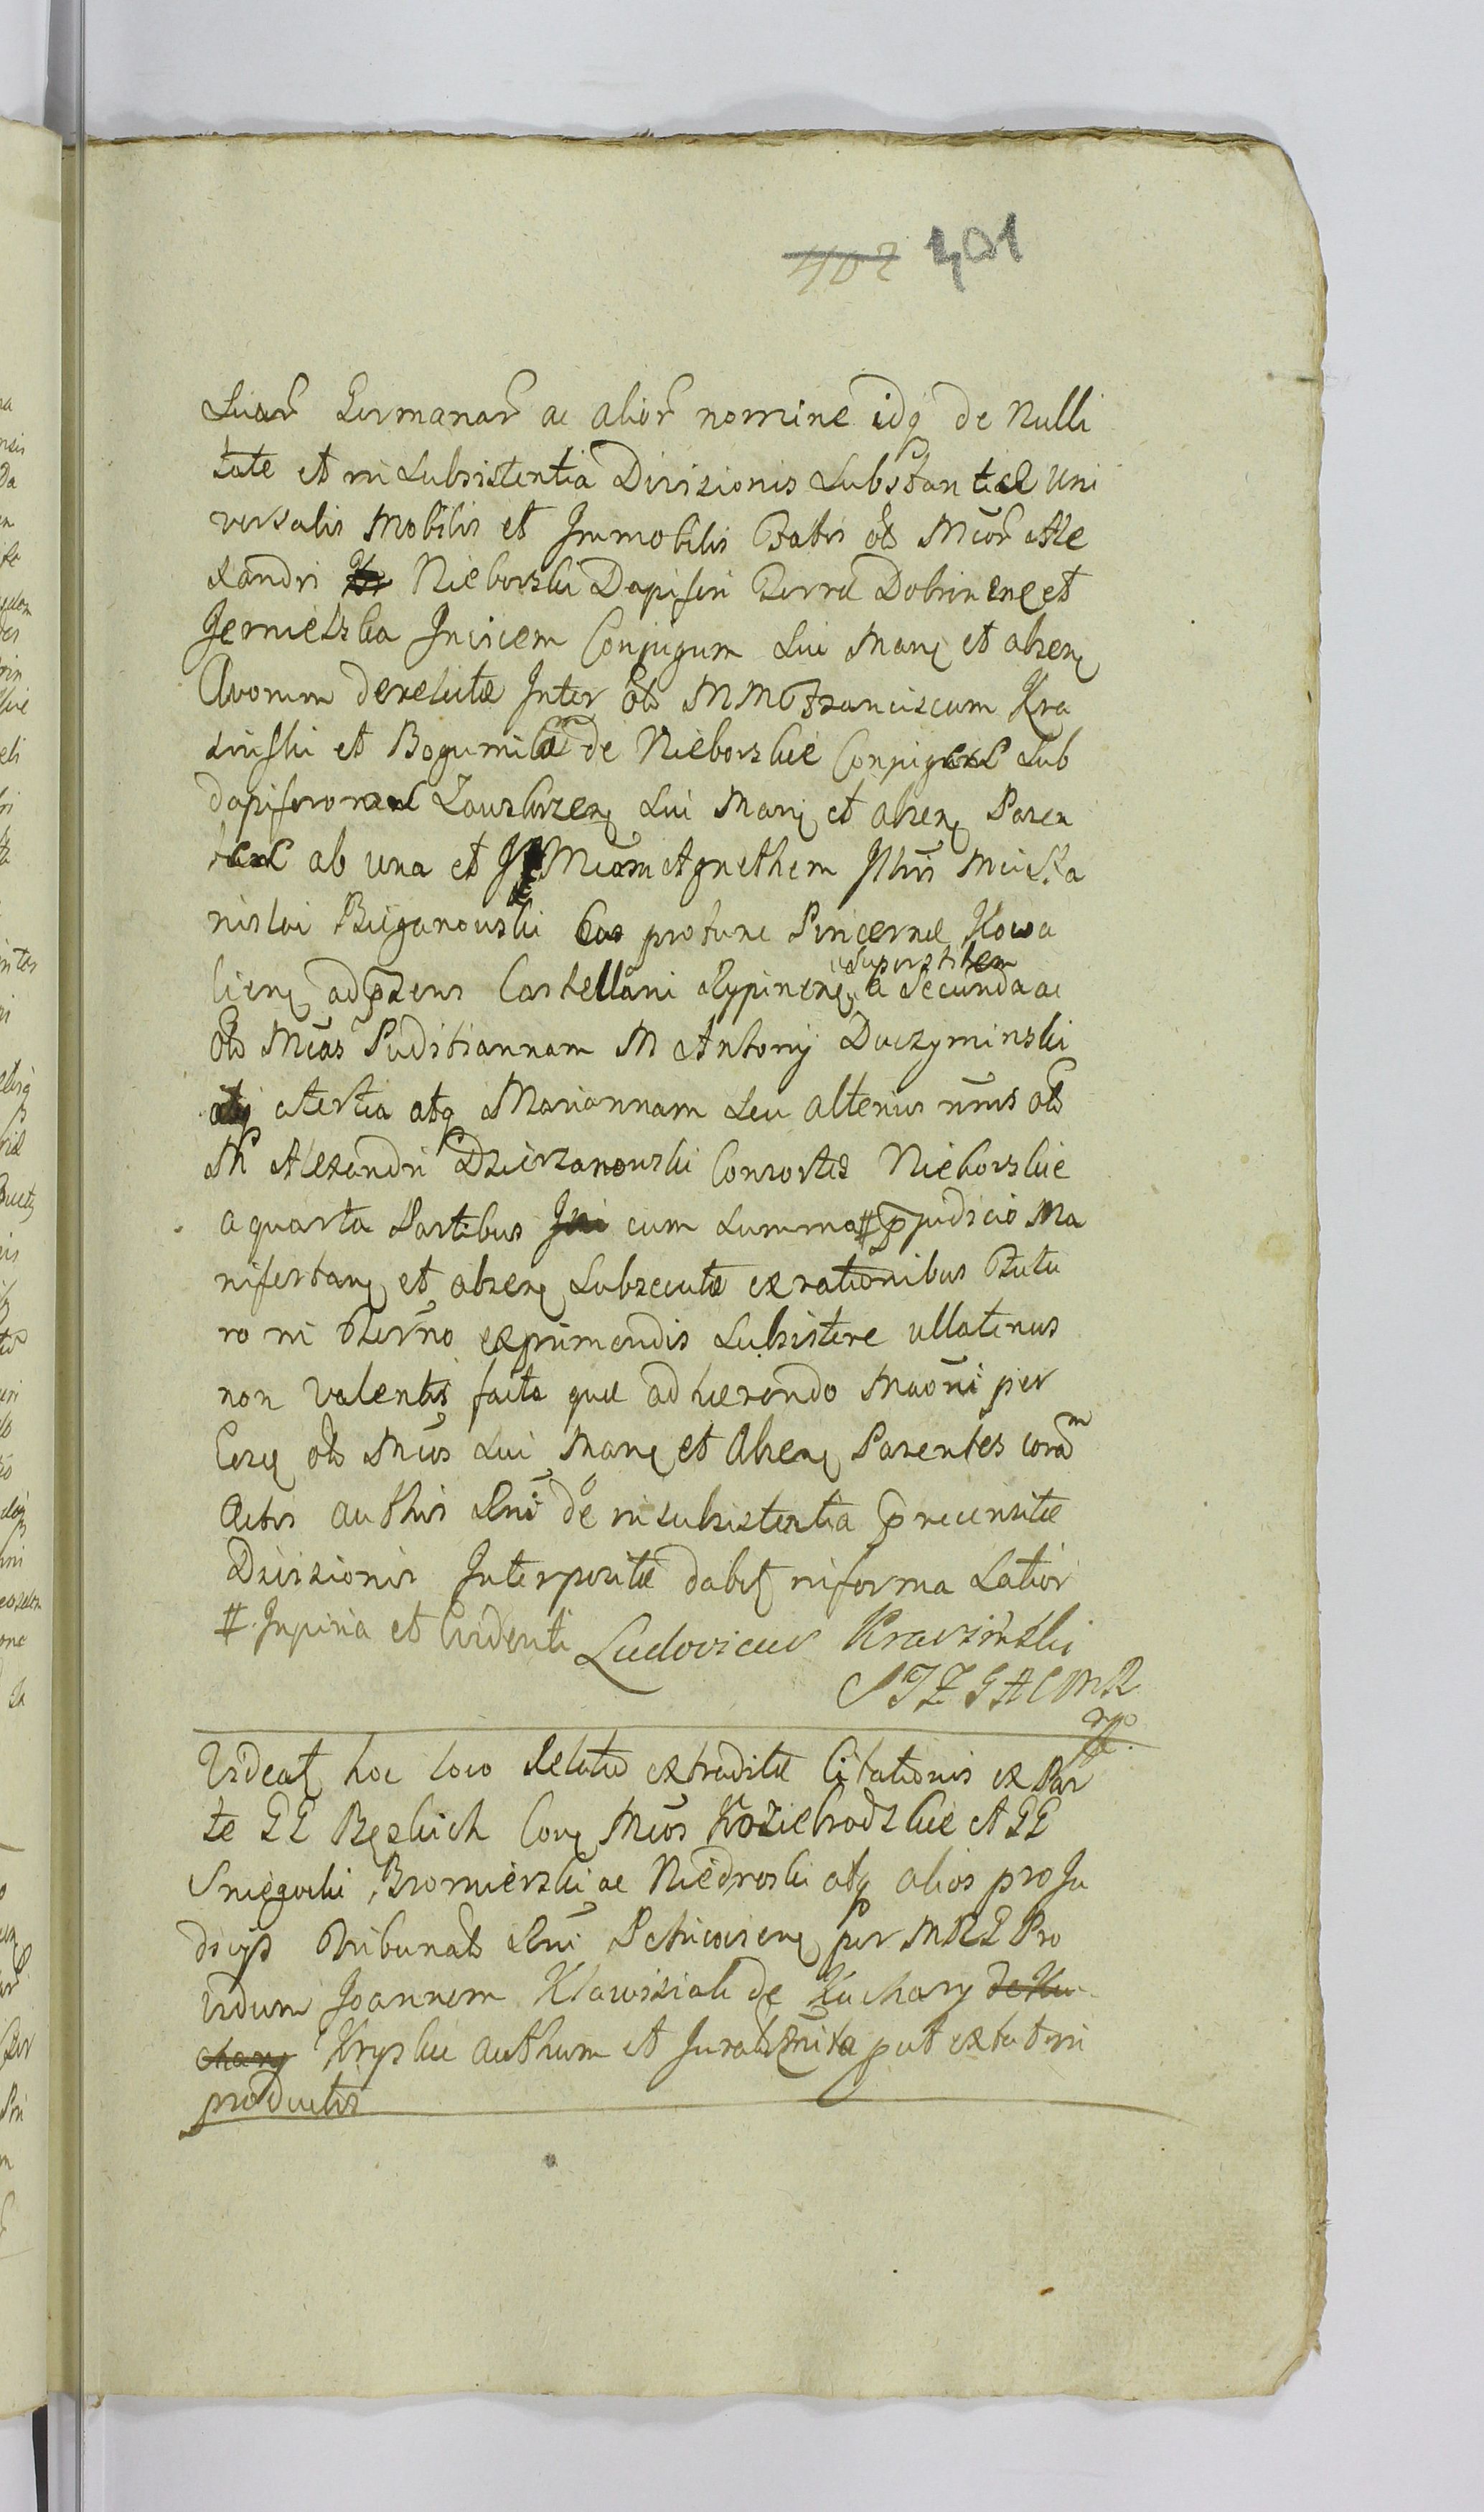 402 401
Suar Germanar ac alior nomine idq de Nulli
tate et in Subsistentia Divisionis Substantiae Uni
versalis Mobilis et Immobilis Fatis ol Mcor Ale
xandri Nieborski Dapiferi Terrae Dobrinene et
Jernielska Invicem Conjugum Sui Mane et absene
Avorum derelictae Inter ol MM Franciscum Kra
sinski et Bogumila de Nieborskie Conjuges Sub
dapiferorum Zawskrzene Sui Mane et absene Paren
tes ab una et Mcam Agnethem Illris Mci Sta
nislai Bieganowski eas protunc Pincernae Kowa
liene adpraesens Castellani Rypinene superstitem a Secunda ac
ol Mcas Puditiannam M Antonij Duczyminski
a tertia atq Mariannam seu alterius nmis ol
M Alexandri Dzierzanowski Consortes Nieborskie
a quarta Partibus cum summa # ppjudicio Ma
nifestane et absene Subsecutae ex rationibus Futu
ro in Termno exprimendis Subsistere ullatenus
non valentis facta quae adhaerendo Maoni per
Eosq ol Mcos Sui Mane et Absene Parentes coram
Actis authis Pni de insubsistentia precensitae
Divisionis Interpositae dabit in forma Latior
# Inpiria et Evidenti Ludovicus Krasinski
S T Z G A C M R
mp
Videat hoc loco Relatio extraditae Citationis ex Par
te GG Bęskich Conq Mcos Koziebrodzkie et GG
Sniegocki, Bromierski ac Niedroski atq alios pro Ju
dicijs Tribunals Rni Petricoviene per MRG Pro
vidum Joannem Klawisiak de Kuchary de Ku
chary Kryskie authum et Juratum mita put extat in
productis